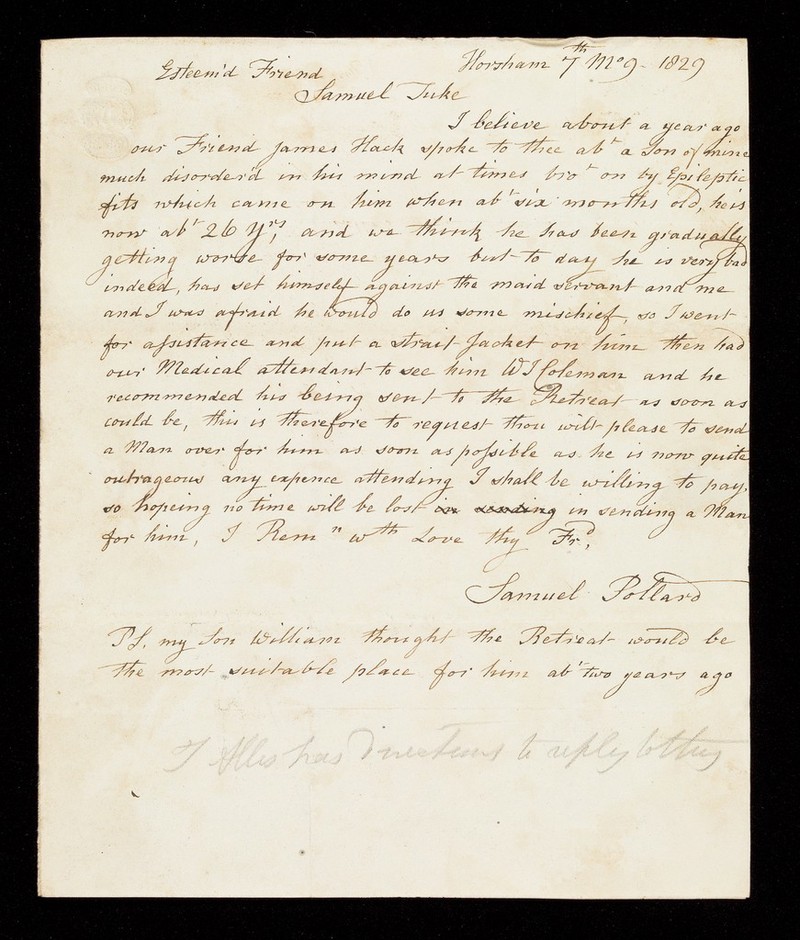 Horsham 7th Mo 9 - 1829
Esteem'd Friend
Samuel Tuke
I believe about a year ago
our Friend James Hack spoke to thee abt a Son of mine
much disorder'd in his mind at times brot on by Epileptic
fits which came on him when abt six months old, he is
now abt 26 Yrs, and we think he has been gradually
getting worse for some years but to day he is very bad
indeed, has set himself against the maid servant and me
and I was afraid he would do us some mischief, so I went
for assistance and put a strait Jacket on him then had
our Medical attendant to see him W J Coleman and he
recommended his being sent to the Retreat as soon as
could be, this is therefore to request thou wilt please to send
a Man over for him as soon as possible as he is now quite
outrageous any expence attending I shall be willing to pay,
so hoping no time will be lost on sending in sending a Man
for him, I Remn wth Love thy Frd,
Samuel Pollard
PS, my Son William thought the Retreat would be
the most suitable place for him abt two years ago
T Allis has directions to reply to this